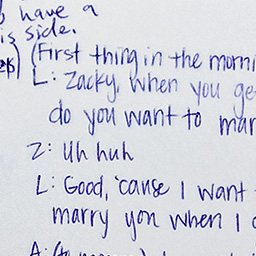 have a
is side.
(First thing in the morni
L: Zacky, when you ge
do you want to mar
Z: Uh huh
L: Good, 'cause I want
marry you when I